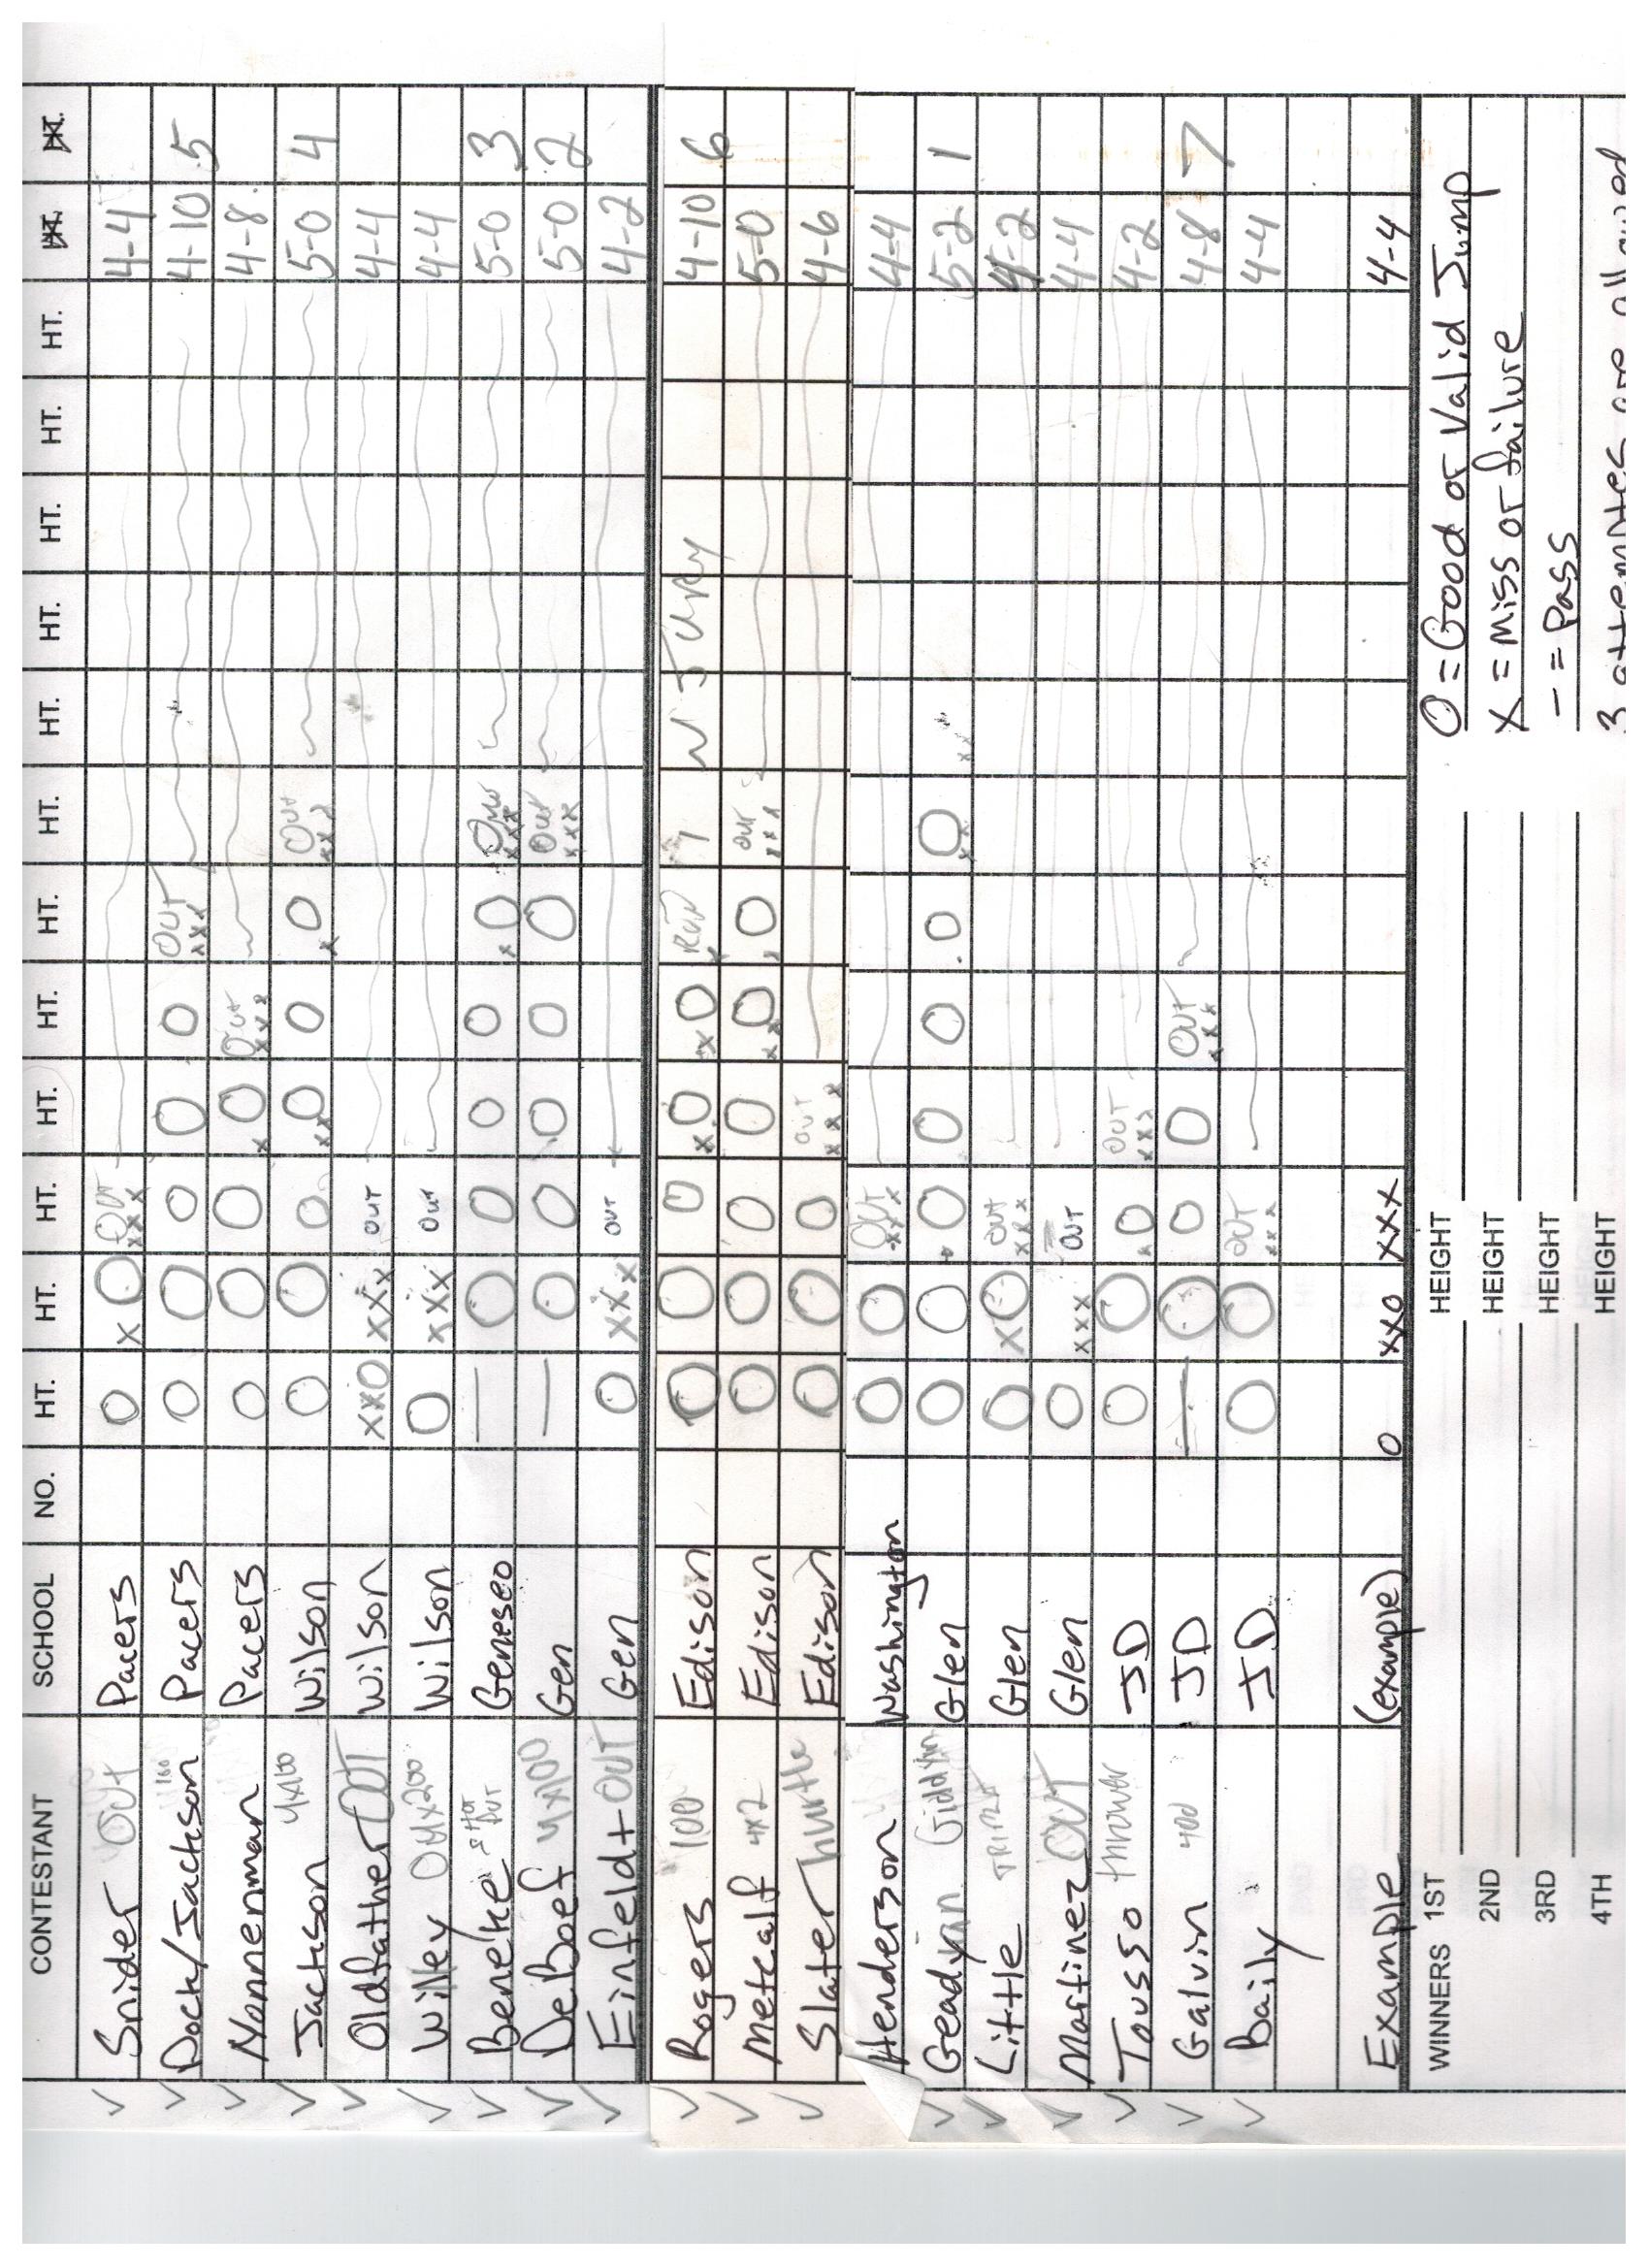 CONTESTANT SCHOOL NO. HT. HT. HT. HT. HT. HT. HT. HT. HT. HT. HT. HT. HT. HT.
Snider OUT Pacers O XO OUT XXX 4-4
Dock/Jackson 100 Pacers O O O O O OUT XXX 4-10 5
Nonnenman Pacers O O O XO OUT XXX 4-8
Jackson 4x100 Wilson O O O XXO O XO OUT XXX 5-0 4
Oldfather OUT Wilson XXO XXX OUT 4-4
Willey 4x200 Wilson O XXX OUT 4-4
Beneke Shot Put Geneseo — O O O O XO OUT XXX 5-0 3
DeBoef 4x100 Gen — O O O O O OUT XXX 5-0 2
Einfeldt OUT Gen O XXX OUT 4-2
Rogers 100 Edison O O O XO XO X INJURY 4-10 6
Metcalf 4x2 Edison O O O O XXO O OUT XXX 5-0
Slater hurtle Edison O O O OUT XXX 4-6
Henderson Washington O O OUT XXX 4-4
Geadyan Giddyin Glen O O O O O O O XX 5-2 1
Little Glen O XO OUT XXX 4-2
Martinez OUT Glen O XXX OUT 4-4
Tousso thrower JD O O O OUT XXX 4-2
Galvin 400 JD — O O O OUT XXX 4-8 7
Baily JD O O OUT XXX 4-4
Example (example) O XXO XXX 4-4
WINNERS 1ST HEIGHT O = Good or Valid Jump
2ND HEIGHT X = miss or failure
3RD HEIGHT — = Pass
4TH HEIGHT 3 attemptes are allowed